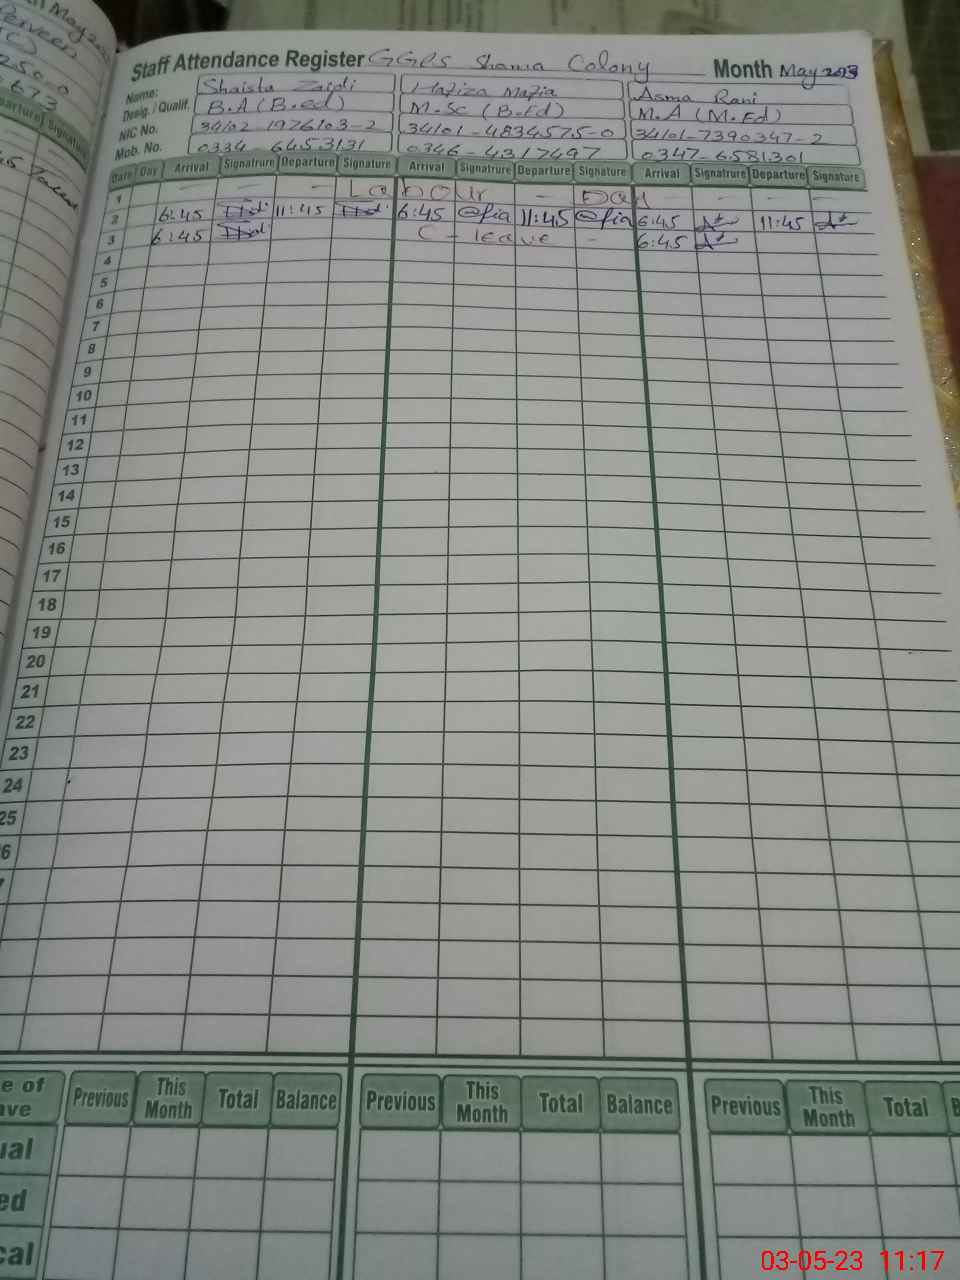 May 202
Perveen
250
673
Departure Signature
Staff Attendance Register GGPS Shama Colony Month May 2023
Name: Shaista Zaidi Hafiza Mafia Asma Rani
Desig. / Qualif. B.A (B.ed) M.Sc (B.Ed) M.A (M.Ed)
NIC No. 34102-1976103-2 34101-4834575-0 34101-7390347-2
Mob. No. 0334-6453131 0346-4317497 0347-6581301
Date Day Arrival Signatrure Departure Signature Arrival Signatrure Departure Signature Arrival Signatrure Departure Signature
1 - - - L a b o u r - D a y
2 6:45 11:45 6:45 @fia 11:45 @fia 6:45 11:45
3 6:45 C - leave - 6:45
4
5
6
7
8
9
10
11
12
13
14
15
16
17
18
19
20
21
22
23
24
25
6
e of
ave Previous This Month Total Balance Previous This Month Total Balance Previous This Month Total B
ual
ed
cal
03-05-23 11:17